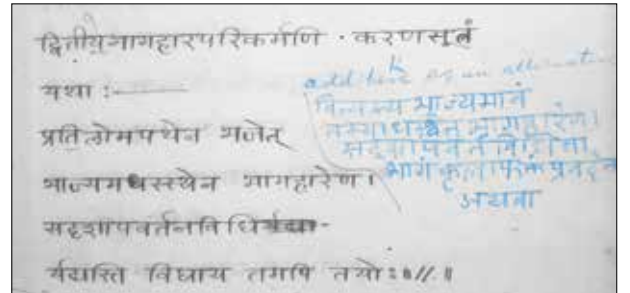 द्वितीयभागहारपरिकर्मणि · करणसूत्रं
यथा :—
प्रतिलोमपथेन भजेत्
भाज्यमधस्थेन भागहारेण ।
सदृशापवर्तनविधि
र्यद्यस्ति विधाय तमपि तयोः ॥
add as an alternative
विन्यस्य भाज्यमानं
तस्याधःस्थेन भागहारेण ।
सदृशापवर्तविधिना
भागं कृत्वा फलं प्रवदेत्
अथवा